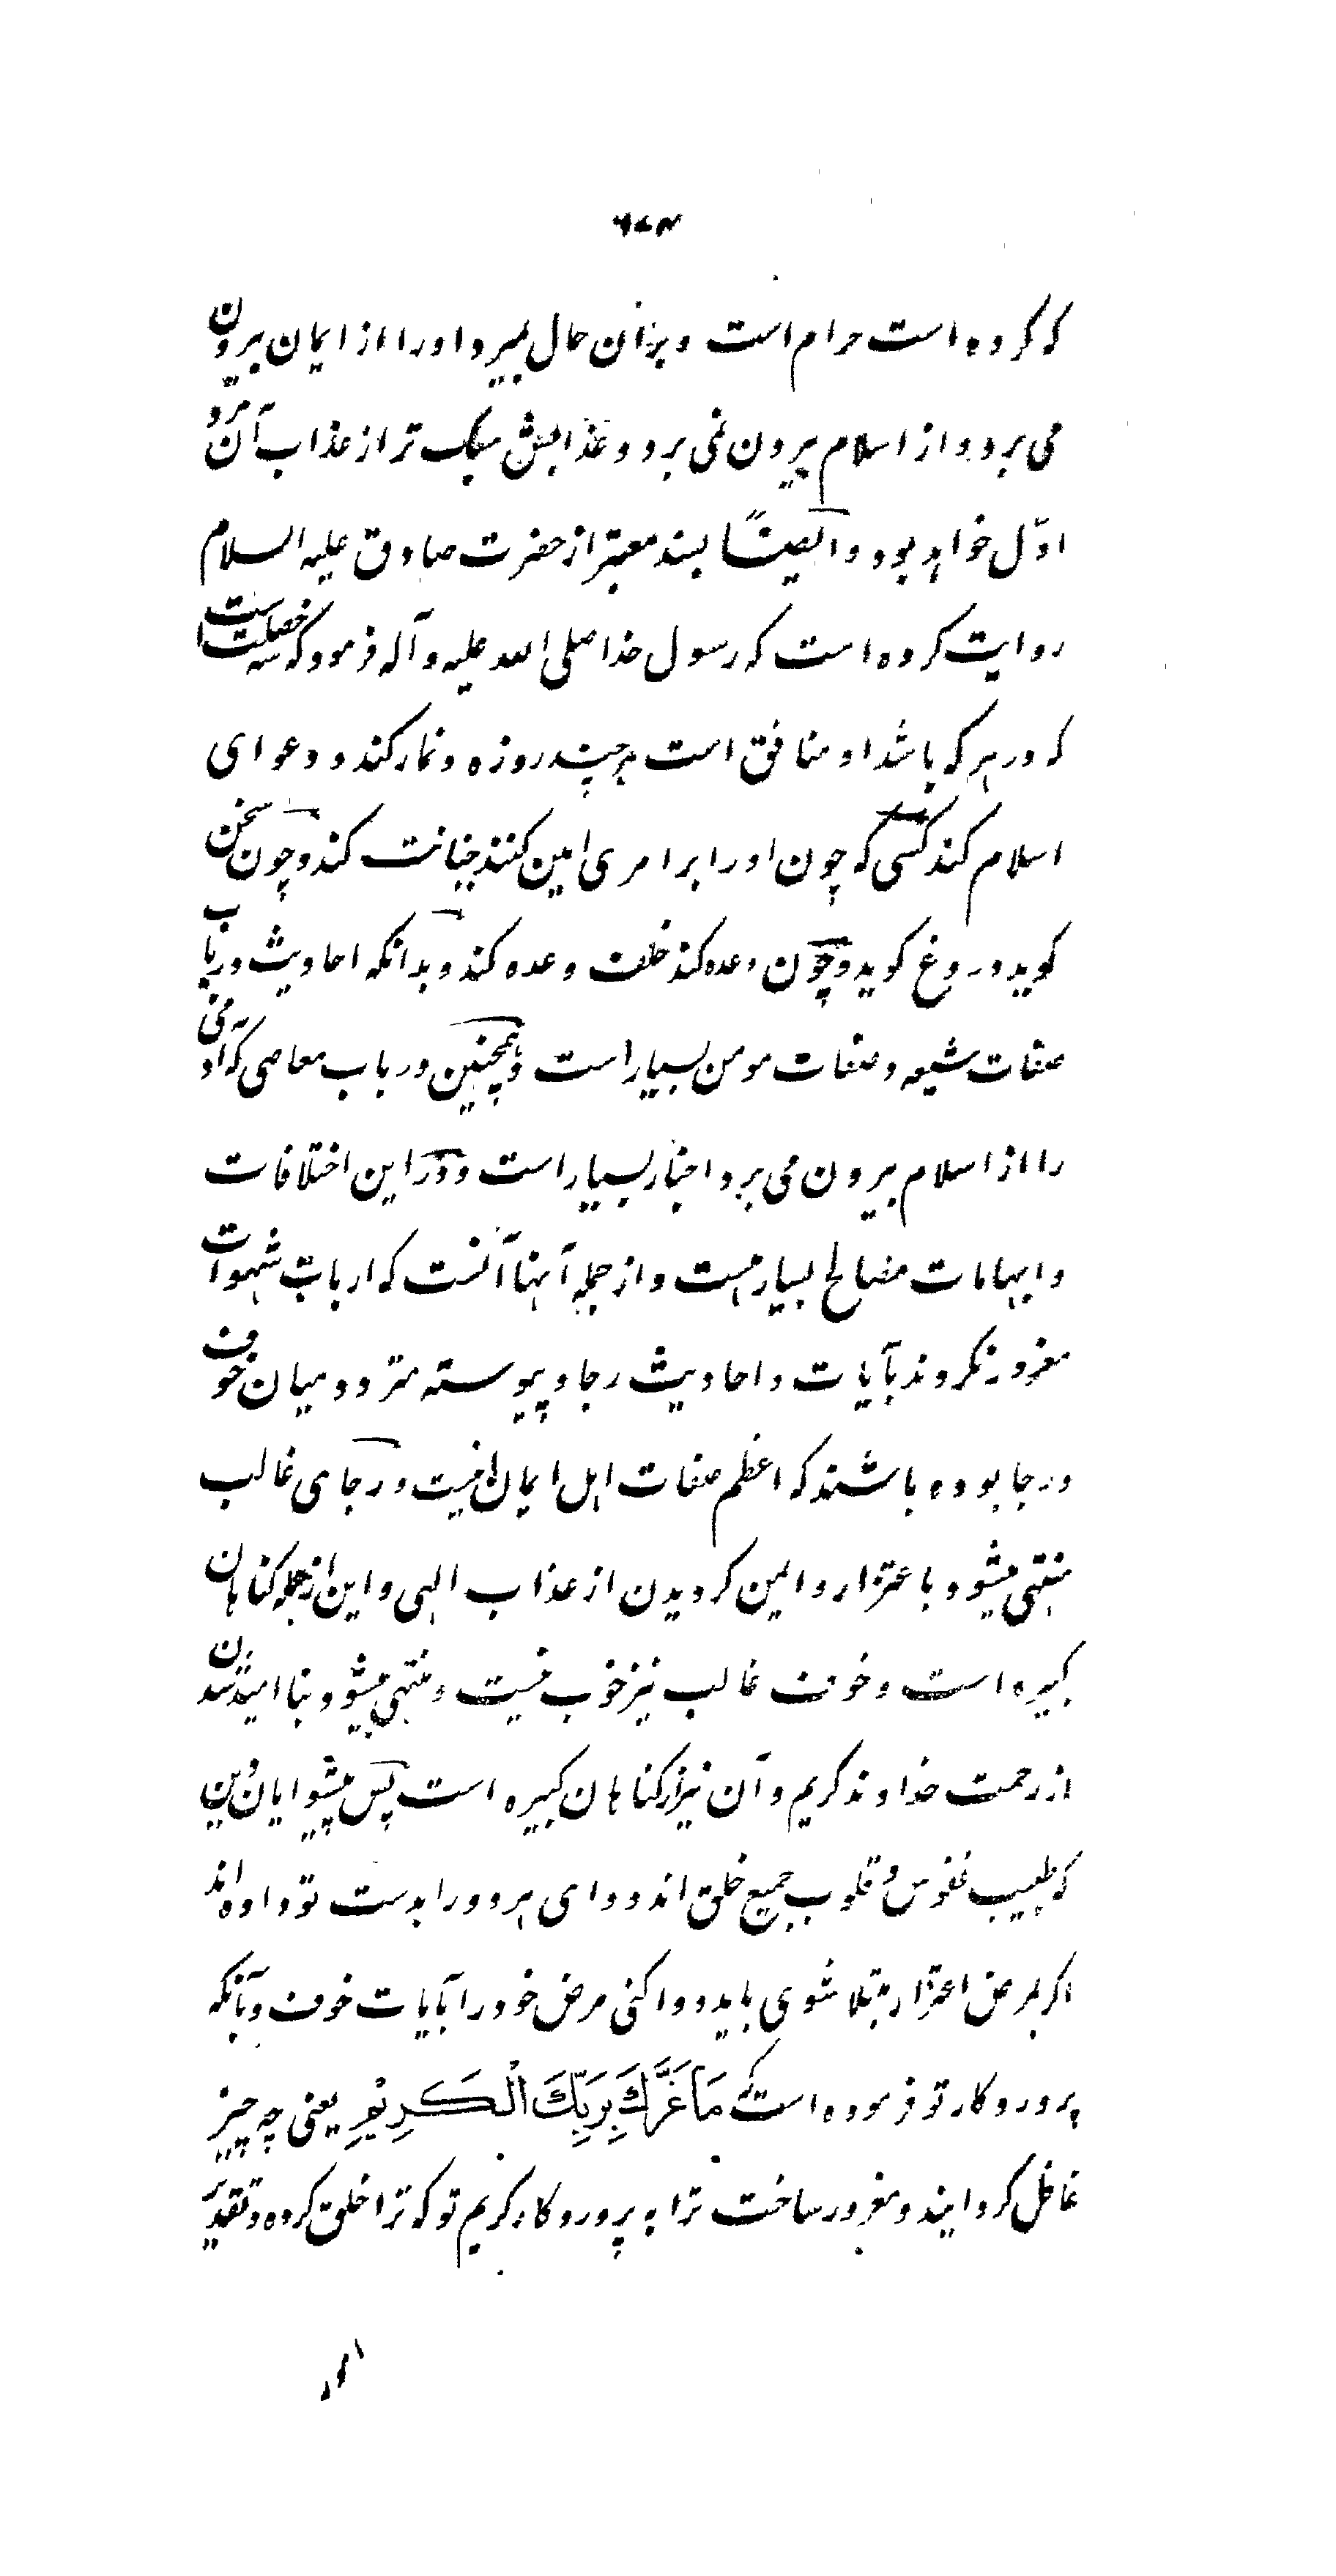 ۶۷۴
که کرده است حرام است و بر آن حال بمیرد او را از ایمان بیرون
می برد و از اسلام بیرون نمی برد و عذابش سبک تر از عذاب آن مرد
اوّل خواهد بود و ایضًا بسند معتبر از حضرت صادق علیه السلام
روایت کرده است که رسول خدا صلی الله علیه و آله فرمود که سه خصلت است
که در هر که باشد او منافق است هر چند روزه و نماز کند و دعوای
اسلام کند کسی که چون او را بر امری امین کنند خیانت کند و چون سخن
کوید دروغ کوید و چون وعده کند خلف وعده کند و بدانکه احادیث در باب
صفات شیعه و صفات مومن بسیار است و همچنین در باب معاصی که آدمی
را از اسلام بیرون می برد اخبار بسیار است و در این اختلافات
و ابهامات مصالح بسیار هست و از جمله آنها آنست که ارباب شهوات
مغرور نکردند بآیات و احادیث رجا و پیوسته متردد میان خوف
و رجا بوده باشند که اعظم صفات اهل ایمان اینست و رجای غالب
منتهی میشود باغترار و ایمن کردیدن از عذاب الهی و این از جمله کناهان
کبیره است و خوف غالب نیز خوب نیست و منتهی میشود بناامید شدن
از رحمت خداوند کریم و آن نیز از کناهان کبیره است پس پیشوایان دین
که طبیب نفوس و قلوب جمیع خلق اند دوای هر دو را بدست تو داده اند
اکر بمرض اغترار مبتلا شوی باید دوا کنی مرض خود را بآیات خوف و بآنکه
پروردکار تو فرموده است که مَا غَرَّكَ بِرَبِّكَ الْكَرِيْمِ یعنی چه چیز
غافل کردانید و مغرور ساخت ترا به پروردکار کریم تو که ترا خلق کرده و تقدیر